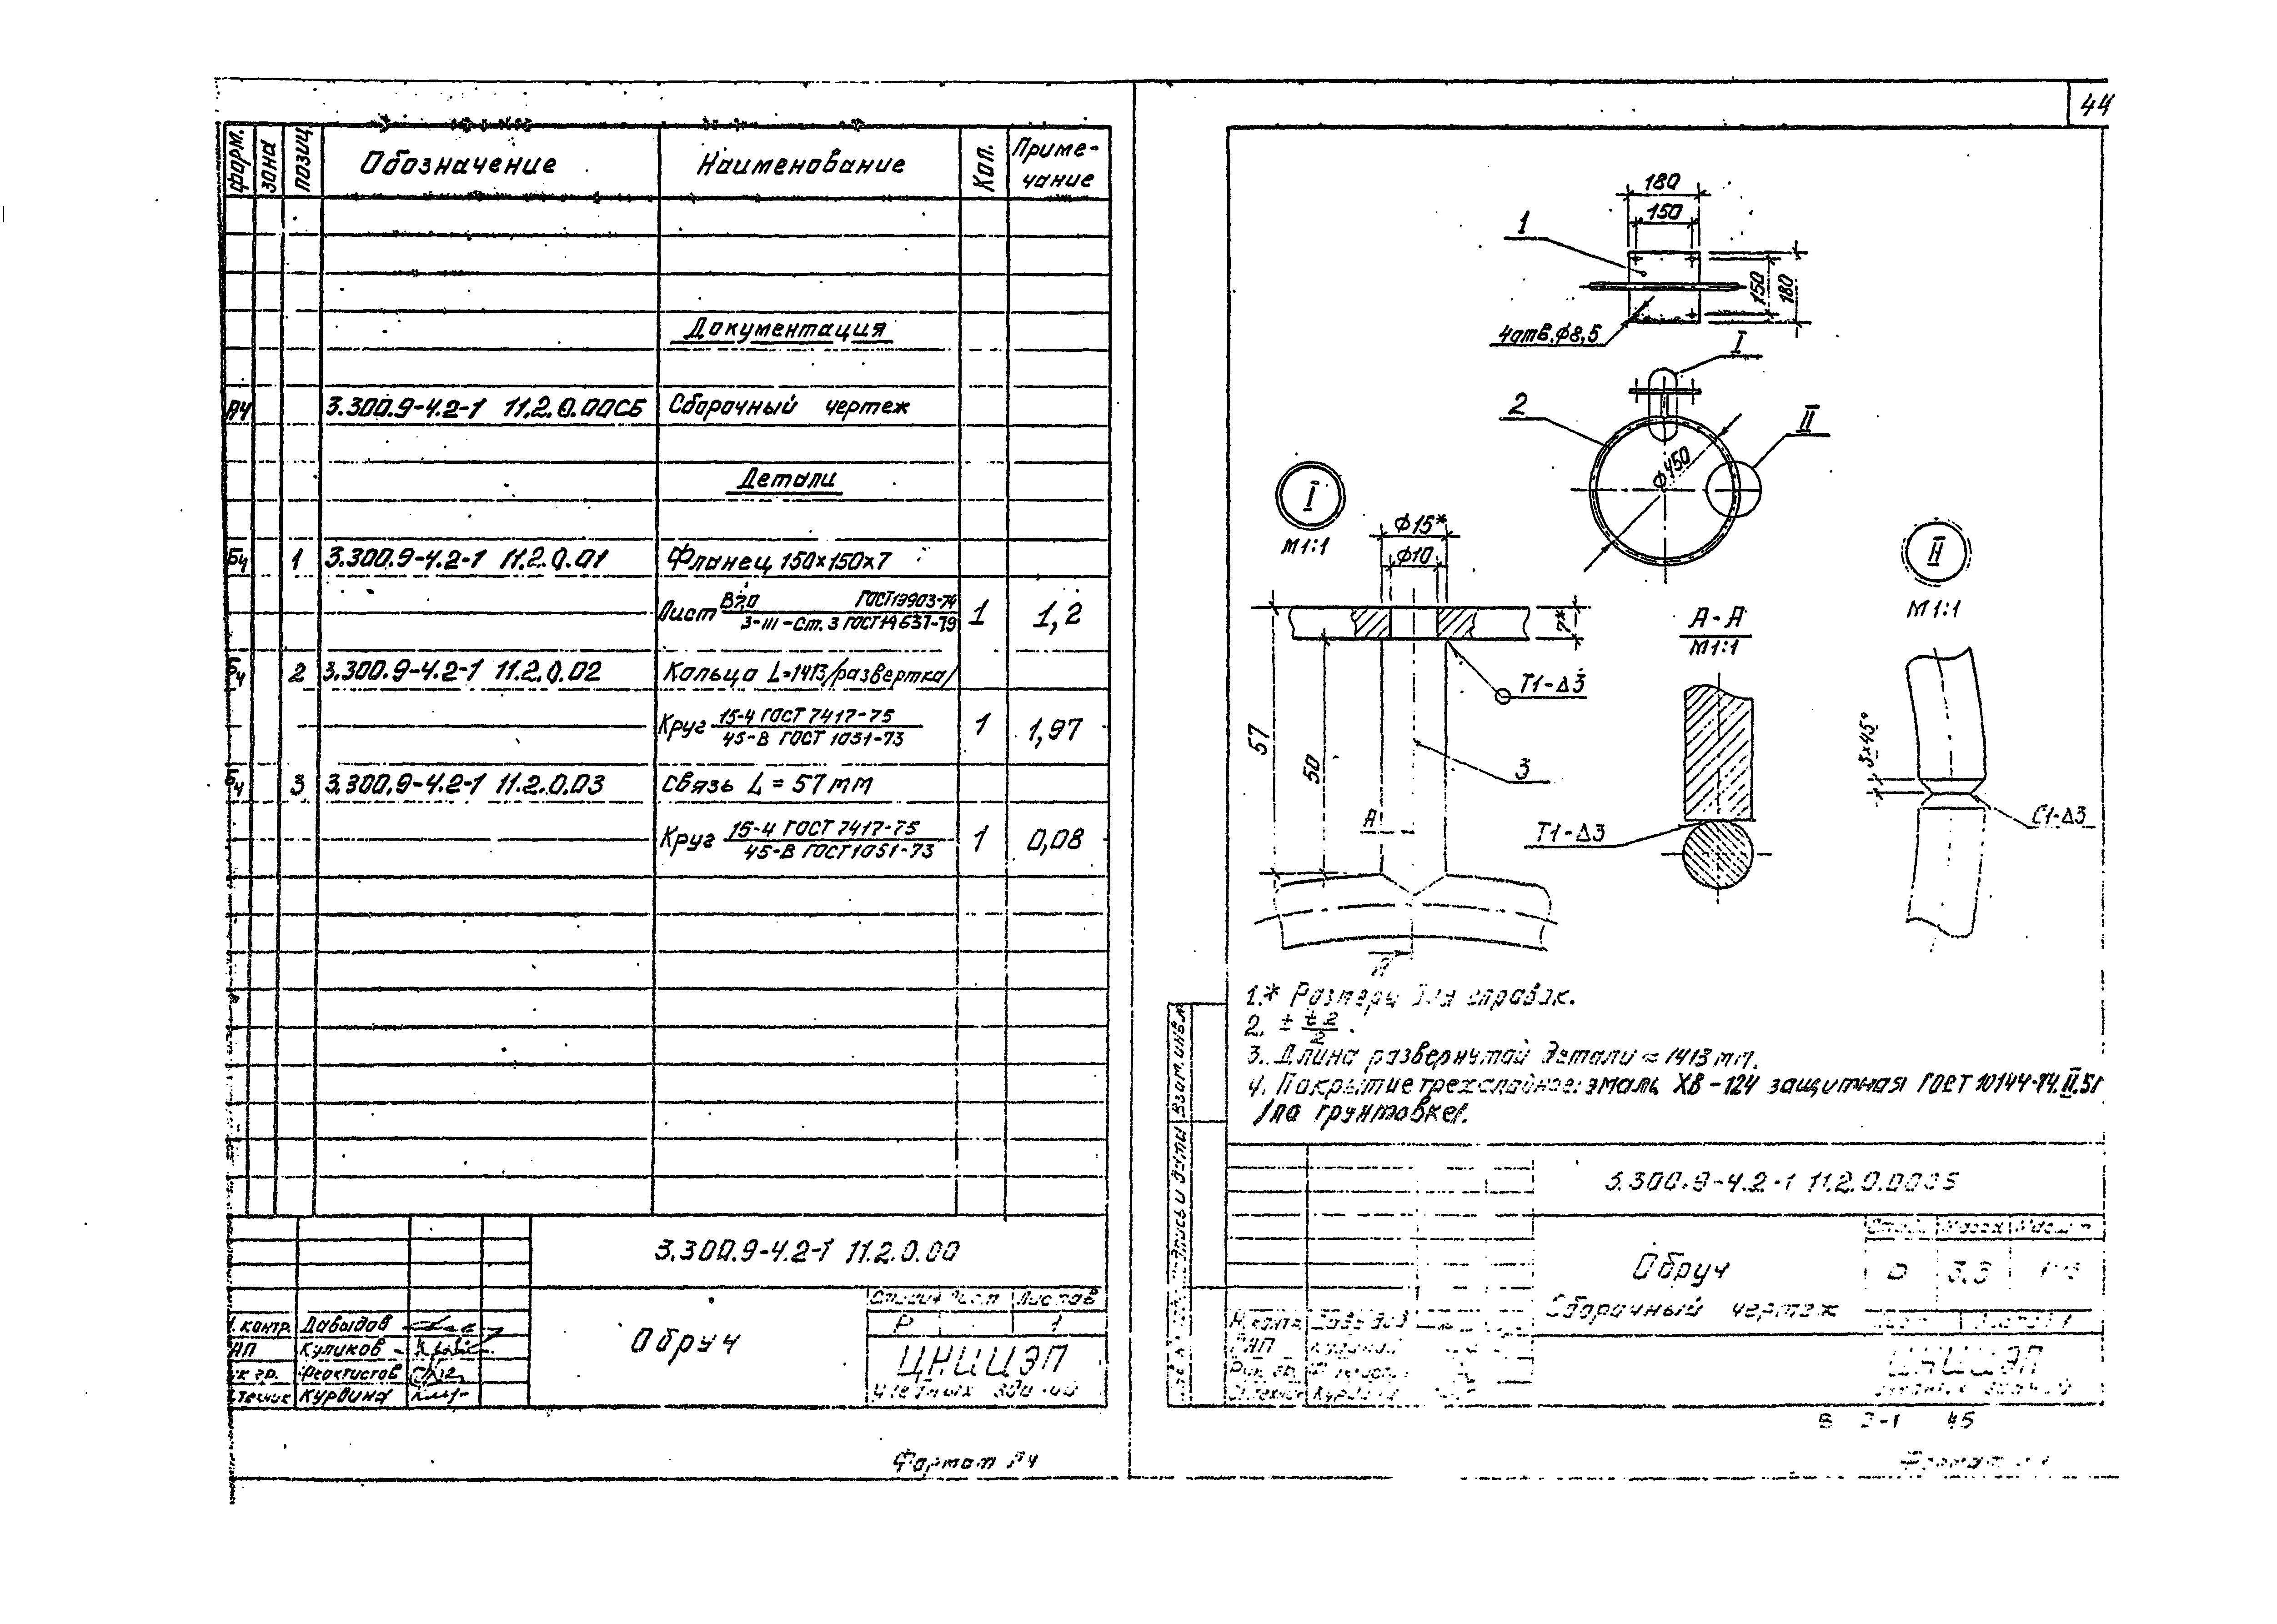 44
форм.
зона
позиц.
Обозначение
Наименование
Кол.
Приме-
чание
Документация
А4 3.300.9-4.2-1 11.2.0.00СБ Сборочный чертеж
Детали
Б4 1 3.300.9-4.2-1 11.2.0.01 Фланец 150×150×7
Лист ГОСТ19903-74 1 1,2
3-III-Ст.3 ГОСТ14637-79
Б4 2 3.300.9-4.2-1 11.2.0.02 Кольцо L=1413/развертка/
Круг 15-4 ГОСТ 7417-75 1 1,97
45-В ГОСТ 1051-73
Б4 3 3.300.9-4.2-1 11.2.0.03 Связь L = 57мм
Круг 15-4 ГОСТ 7417-75 1 0,08
45-В ГОСТ 1051-73
3.300.9-4.2-1 11.2.0.00
Обруч
Стадия Лист Листов
Р 1
ЦНИИЭП
контр. Давыдов
Куликов
гр. Феоктистов
техник Курдина
Формат А4
180
150
1
150
180
4отв.ф8,5
I
2
II
ф450
I
М1:1
ф15*
ф10
7*
57
50
Т1-Δ3
3
А
А
А-А
М1:1
Т1-Δ3
II
М1:1
3×45°
С1-Δ3
1.* Размеры для справок.
2. ± t2/2.
3. Длина развернутой детали ≈ 1413мм.
4. Покрытие трехслойное: эмаль ХВ-124 защитная ГОСТ 10144-74.II.5/
/по грунтовке/.
Взам. инв.№
3.300.9-4.2-1 11.2.0.00СБ
Обруч
Сборочный чертеж
Масса
3.3
ЦНИИЭП
45